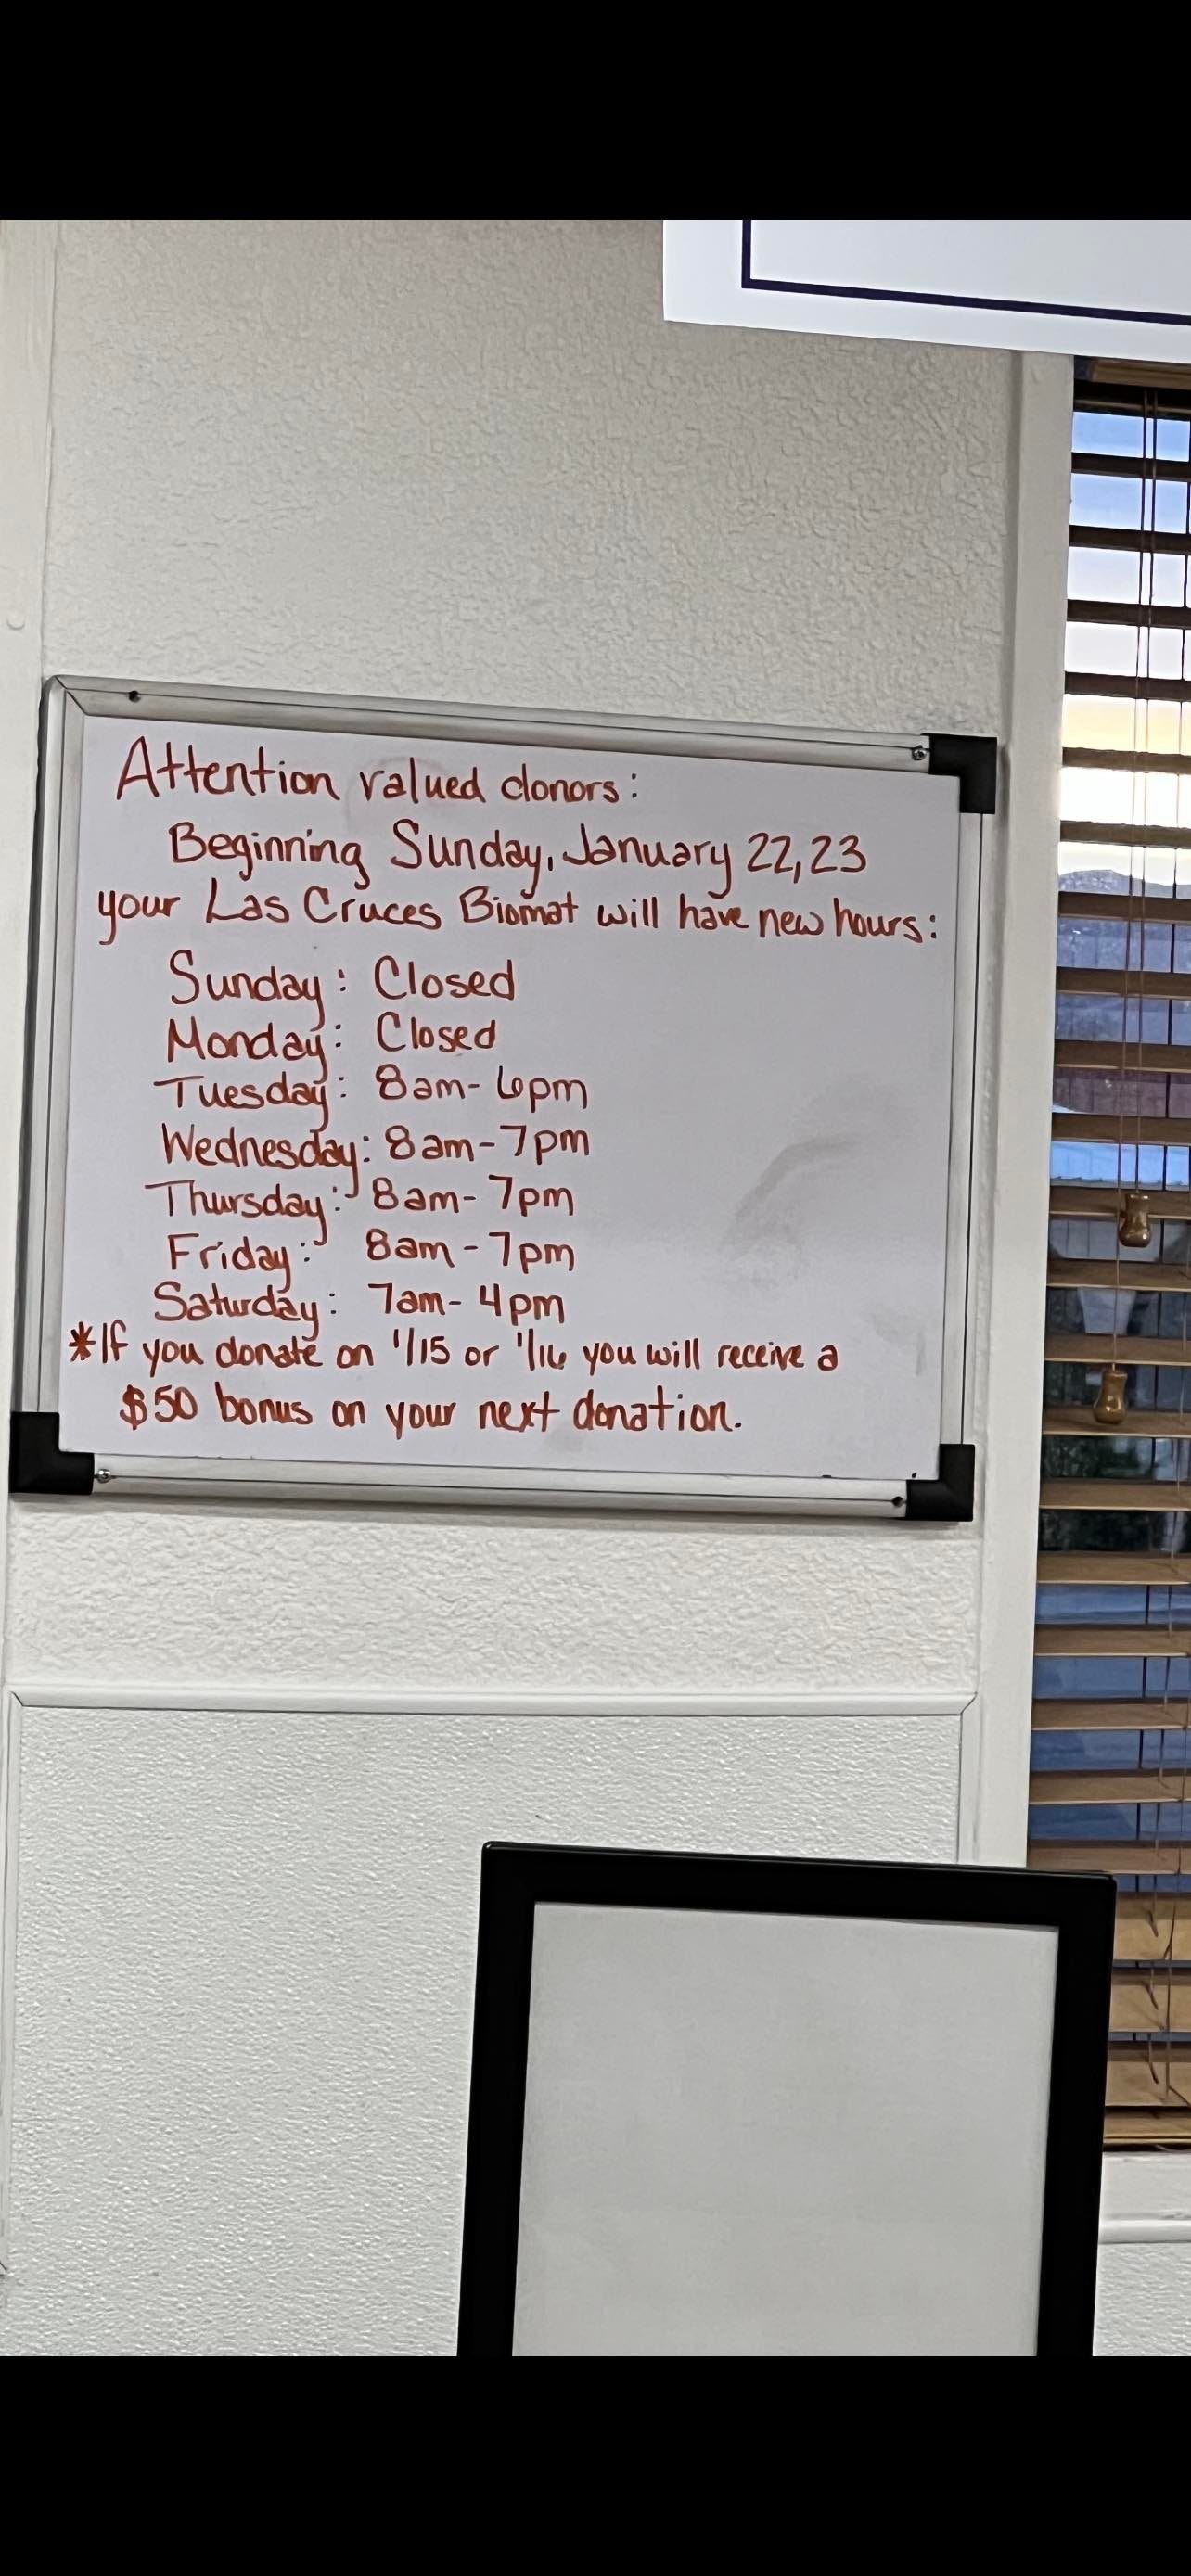 Attention valued donors:
Beginning Sunday, January 22, 23
your Las Cruces Biomat will have new hours:
Sunday: Closed
Monday: Closed
Tuesday: 8am-6pm
Wednesday: 8am-7pm
Thursday: 8am-7pm
Friday: 8am-7pm
Saturday: 7am-4pm
*If you donate on 1/15 or 1/16 you will receive a
$50 bonus on your next donation.